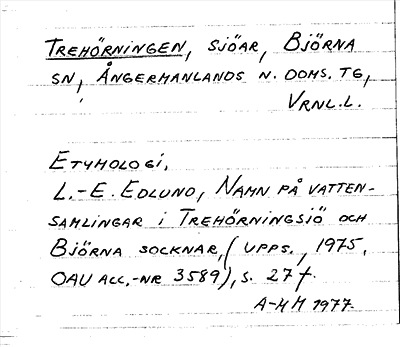 TREHÖRNINGEN, SJÖAR, BJÖRNA
SN, ÅNGERMANLANDS N. DOMS. TG,
VRNL.L.
ETYMOLOGI.
L.-E. EDLUND, NAMN PÅ VATTEN-
SAMLINGAR I TREHÖRNINGSJÖ OCH
BJÖRNA SOCKNAR, (UPPS., 1975,
OAU ACC.-NR 3589), S. 27 f.
A-MM 1977